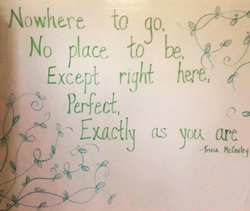 Nowhere to go,
No place to be,
Except right here,
Perfect,
Exactly as you are